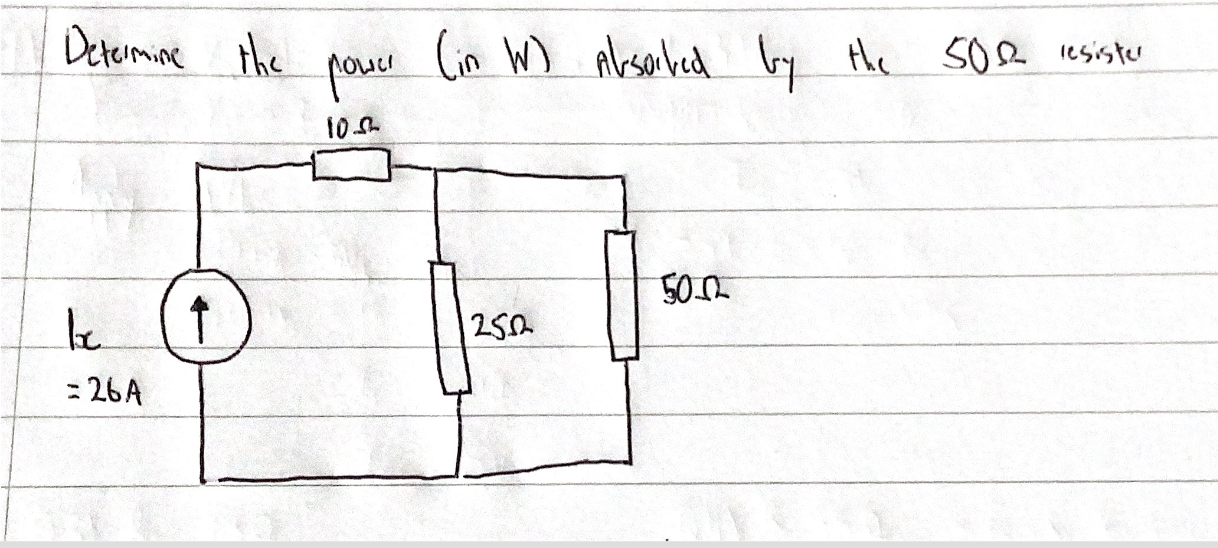 Determine the power (in W) Absorbed by the 50Ω resister
10Ω
50Ω
25Ω
Ix
= 26A